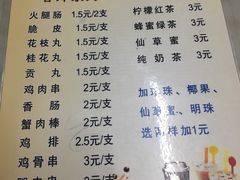 火腿肠 1.5元/2支
脆皮 1.5元/支
花枝丸 1.5元/支
桂花肠 1.5元/支
贡丸 1.5元/支
鸡肉串 2元/支
香肠 2元/支
蟹肉棒 2元/支
鸡排 2.5元/支
鸡骨串 3元/支
3元/支
柠檬红茶 3元
蜂蜜绿茶 3元
仙草蜜 3元
纯奶茶 3元
加珍珠、椰果、
仙草蜜、明珠
选两样加1元